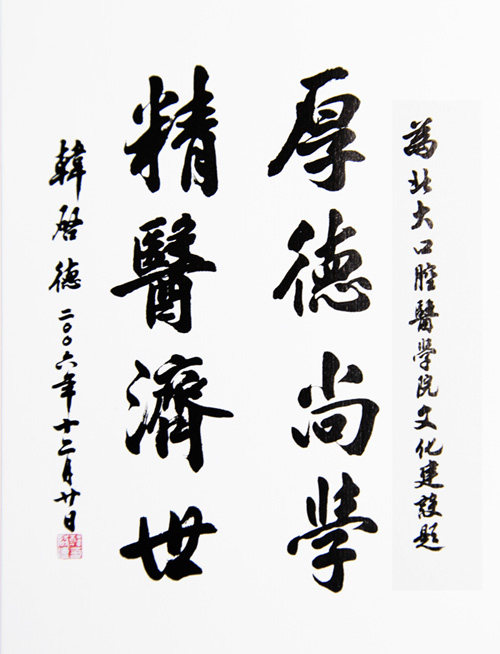 為北大口腔醫學院文化建設題
厚德尚學
精醫濟世
韓启德二〇〇六年十二月廿日